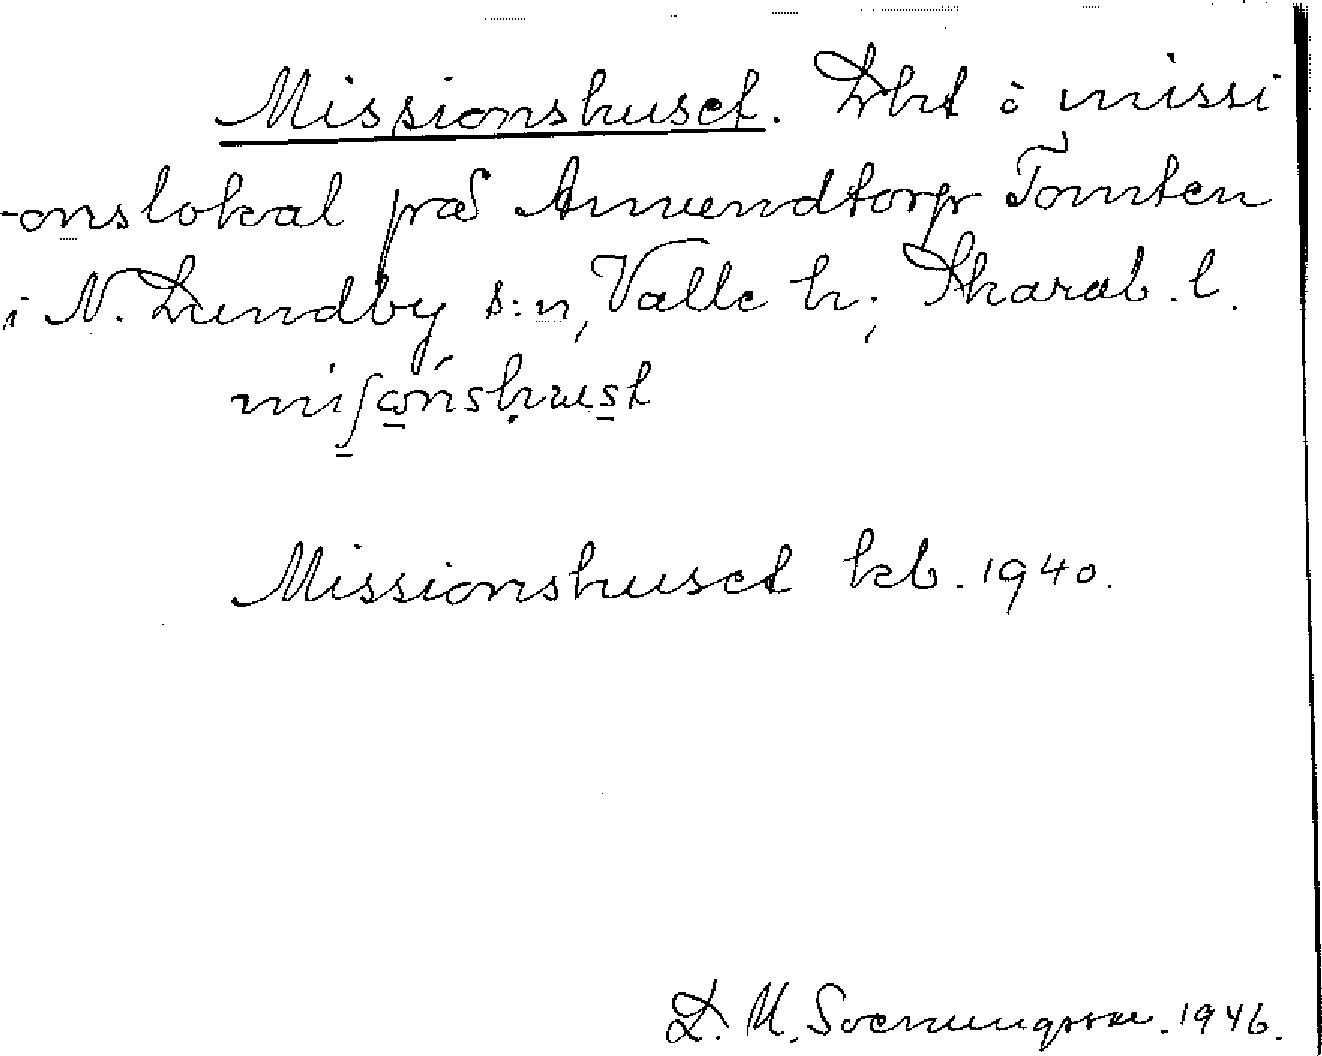 Missionshuset. Lht o missi
-onslokal på Amundtorp Tomten
i N. Lundby s:n, Valle h; Skarab. l.
Missionshuset kb. 1940.
D. M. Svenungsson. 1946.